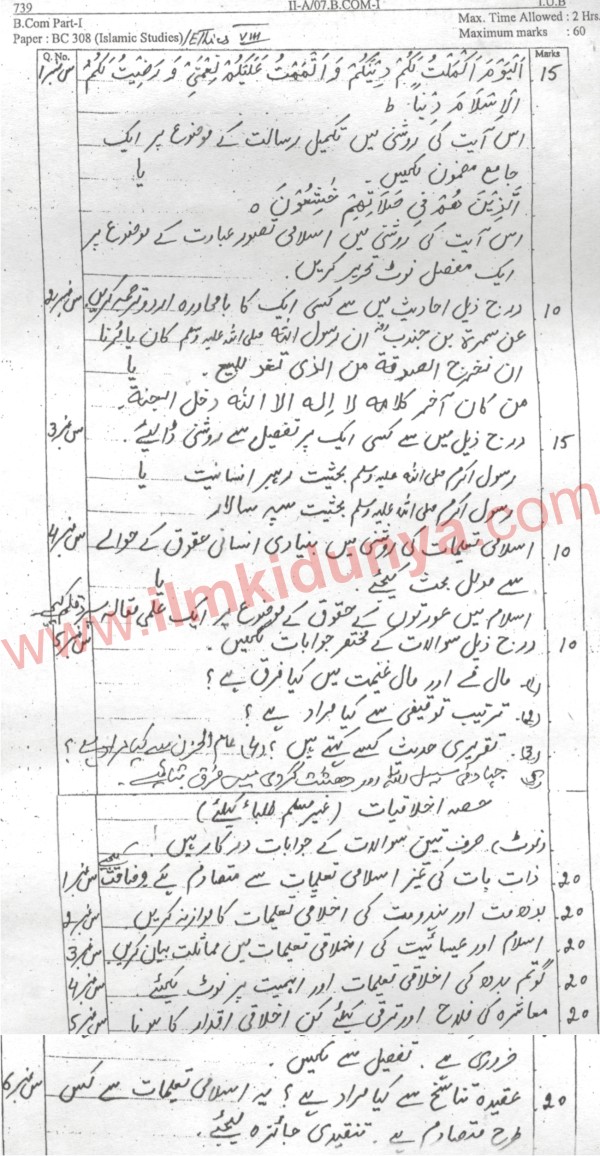 739 II-A/07.B.COM-I I.U.B
B.Com Part-I Max. Time Allowed : 2 Hrs.
Paper : BC 308 (Islamic Studies)/Ethics VIII Maximum marks : 60
Q. No. Marks
س نمبر1 اَلْيَوْمَ اَكْمَلْتُ لَكُمْ دِيْنَكُمْ وَ اَتْمَمْتُ عَلَيْكُمْ نِعْمَتِيْ وَ رَضِيْتُ لَكُمُ 15
الْاِسْلَامَ دِيْنًا ط
اس آیت کی روشنی میں تکمیل رسالت کے موضوع پر ایک
جامع مضمون لکھیں۔ یا
اَلَّذِيْنَ هُمْ فِيْ صَلَاتِهِمْ خٰشِعُوْنَ ه
اس آیت کی روشنی میں اسلامی تصور عبادت کے موضوع پر
ایک مفصل نوٹ تحریر کریں۔
س نمبر2 درج ذیل احادیث میں سے کسی ایک کا بامحاورہ اردو ترجمہ کریں۔ 10
عن سمرة بن جندب ان رسول الله صلی اللہ علیہ وسلم كان يامرنا
ان نخرج الصدقة من الذى نعد للبيع۔ یا
من كان آخر كلامه لا اله الا الله دخل الجنة۔
س نمبر3 درج ذیل میں سے کسی ایک پر تفصیل سے روشنی ڈالیے۔ 15
رسول اکرم صلی اللہ علیہ وسلم بحیثیت رہبر انسانیت یا
رسول اکرم صلی اللہ علیہ وسلم بحیثیت سپہ سالار
س نمبر4 اسلامی تعلیمات کی روشنی میں بنیادی انسانی حقوق کے حوالے 10
سے مدلل بحث کیجئے۔ یا
اسلام میں عورتوں کے حقوق کے موضوع پر ایک علمی مقالہ سپرد قلم کیجیے
س نمبر5 درج ذیل سوالات کے مختصر جوابات لکھیں۔ 10
(1) مال فے اور مال غنیمت میں کیا فرق ہے؟
(2) ترتیب توقیفی سے کیا مراد ہے؟
(3) تقریری حدیث کسے کہتے ہیں؟ (4) عام الحزن سے کیا مراد ہے؟
(5) جہاد فی سبیل اللہ اور دھشت گردی میں فرق بتائیے۔
حصہ اخلاقیات (غیر مسلم طلباء کیلئے)
(نوٹ) صرف تین سوالات کے جوابات درکار ہیں۔
س نمبر1 ذات پات کی تمیز اسلامی تعلیمات سے متصادم ہے وضاحت کیجئے 20
س نمبر2 بدھ مت اور ہندو مت کی اخلاقی تعلیمات کا موازنہ کریں۔ 20
س نمبر3 اسلام اور عیسائیت کی اخلاقی تعلیمات میں مماثلت بیان کریں۔ 20
س نمبر4 گوتم بدھ کی اخلاقی تعلیمات اور اہمیت پر نوٹ لکھئے۔ 20
س نمبر5 معاشرہ کی فلاح اور ترقی کیلئے کن اخلاقی اقدار کا ہونا 20
ضروری ہے۔ تفصیل سے لکھیں۔
س نمبر6 عقیدہ تناسخ سے کیا مراد ہے؟ یہ اسلامی تعلیمات سے کس 20
طرح متصادم ہے۔ تنقیدی جائزہ لیجئے۔
www.ilmkidunya.com